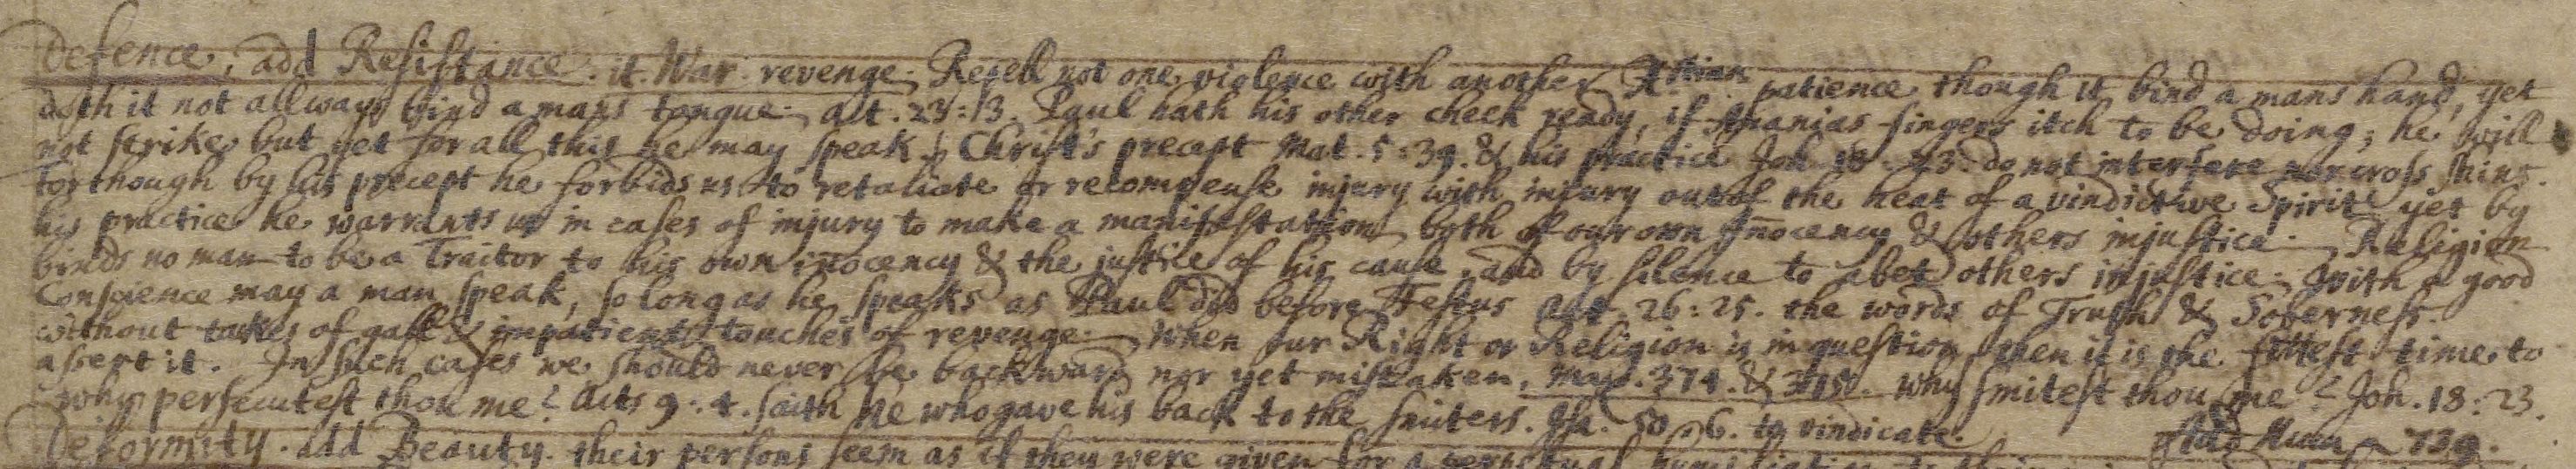 Defence, add Resistance. it. War. revenge. Repell not one violence with another. Xtian patience though it bind a mans hand, yet
doth it not allways bind a mans tongue. act. 23:13. Paul hath his other cheek ready, if Ananias fingers itch to be doing; he will
not strike but yet for all this he may speak. Christ's precept Mat. 5:39. & his practice Joh. 18:23. do not interfere nor cross shins.
for though by his precept he forbids us to retaliate or recompense injury with injury out of the heat of a vindictive Spirit yet by
his practice he warrants us in cases of injury to make a manifestation both of our own Iñocency & others injustice. Religion
binds no man to be a Traitor to his own iñocency & the justice of his cause, and by silence to abet others injustice. With a good
Conscience may a man speak, so long as he speaks as Paul did before Festus Act. 26:25. the words of Truth & Soberness.
without of gall & impatient touches of revenge. When our Right or Religion is in question, then it is the fittest time to
assert it. In such cases we should never be backward nor yet mistaken, 374. & why smitest thou me? Joh. 18:23.
why persecutest thou me? Acts 9:4. saith he who gave his back to the smiters. Isa. 50.6. to vindicate. Add 739.
Deformity. add Beauty. their persons seem as if they were given for a perpetual